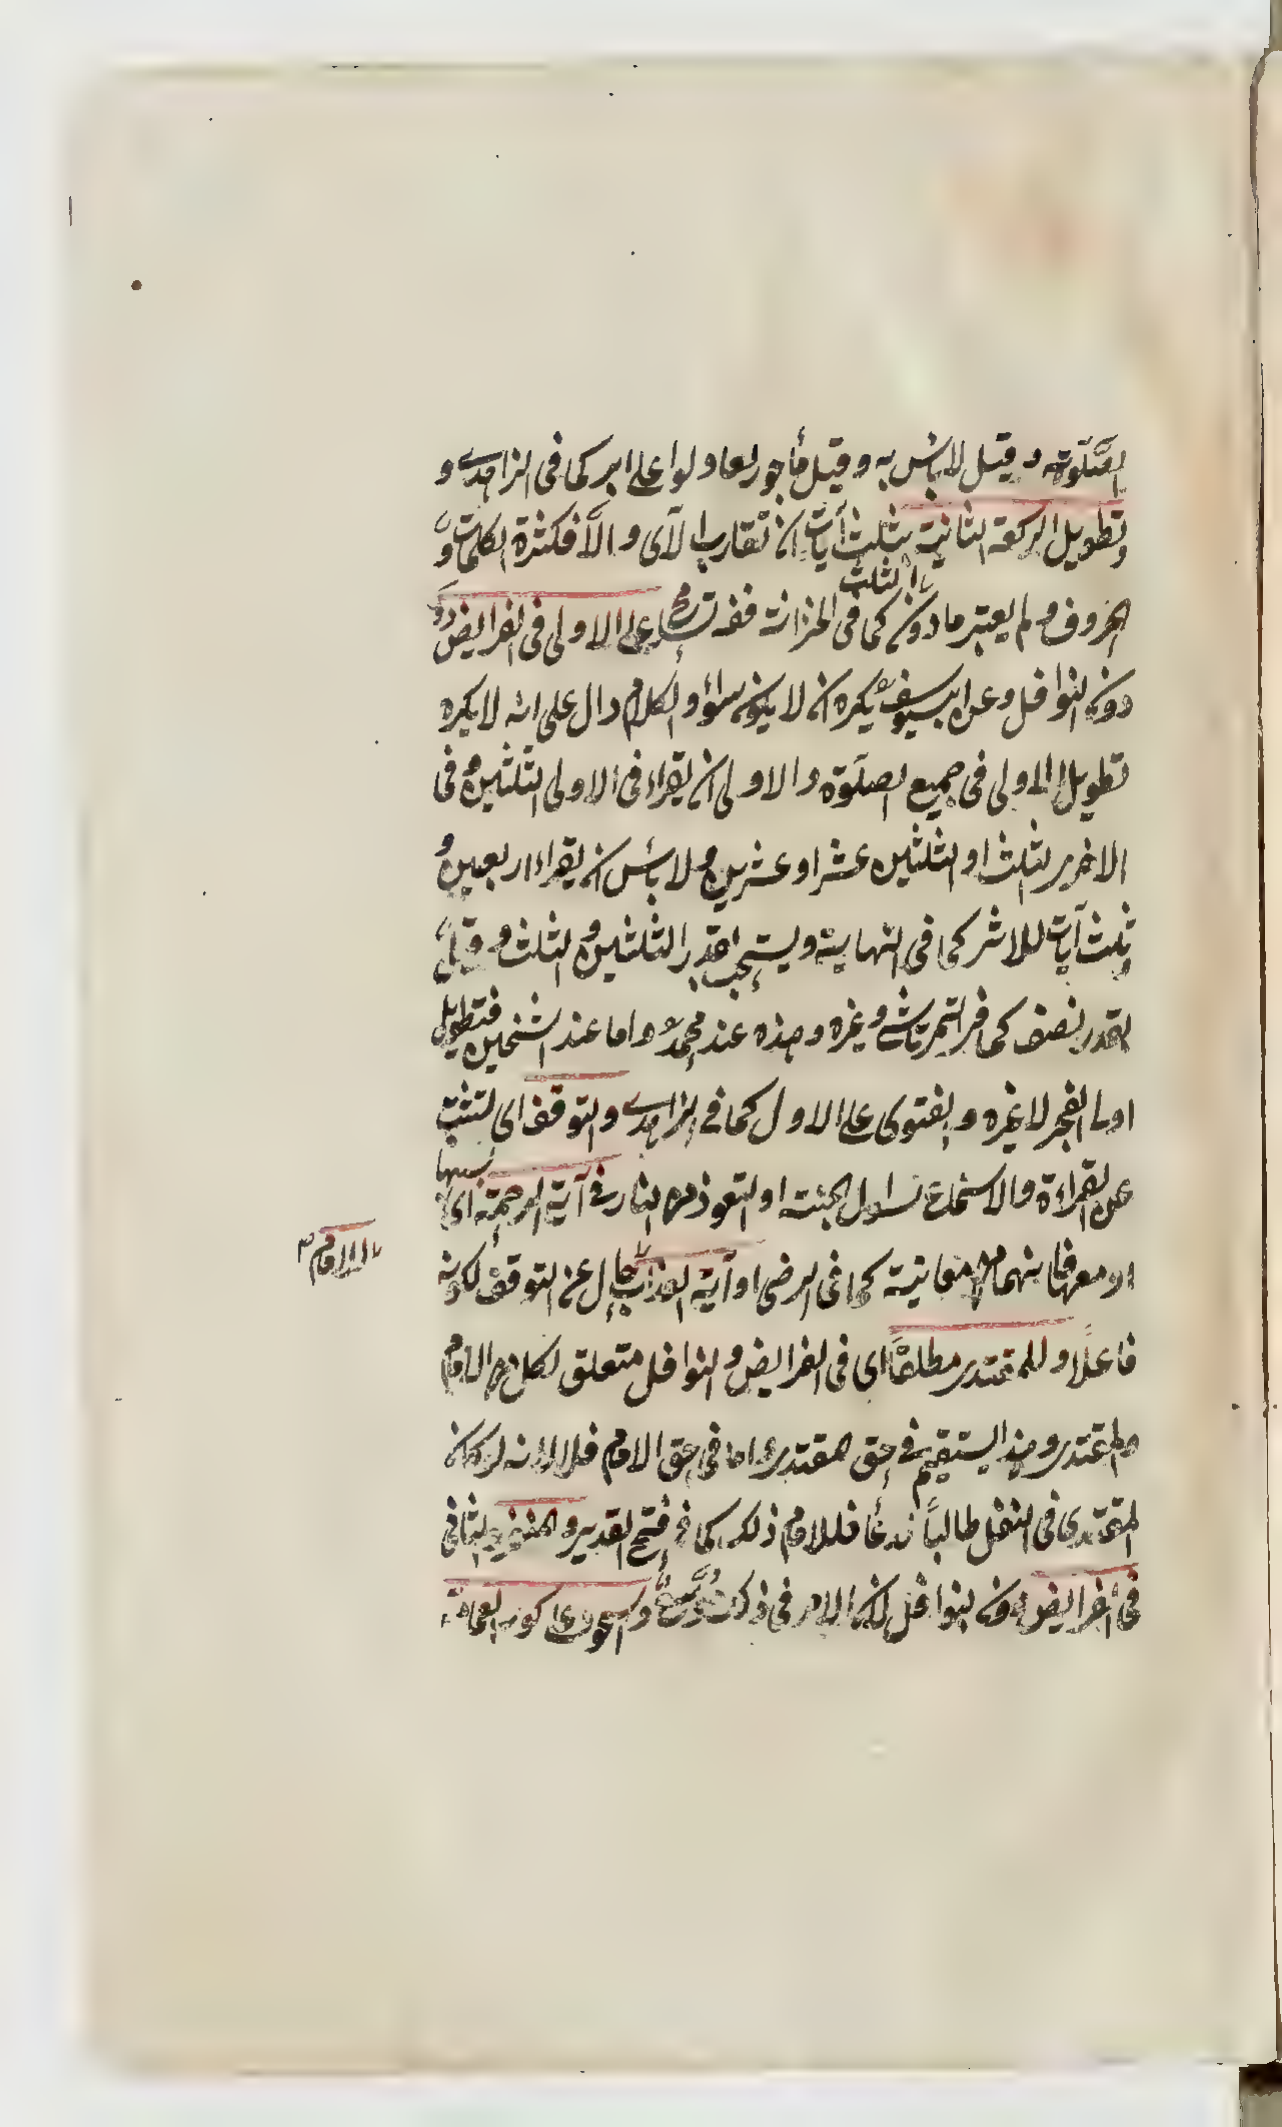 الصلوة وقيل لا بأس به وقيل مأجور كما في الزاهدى و
وتطويل الركعة الثانية بثلث آيات ان تقارب الآى والا فكثرة الكلمات و
الحروف ولم يعتبر ما دون الثلث كما فى الخزانة على الاولى فى الفرايض
دون النوافل وعن ابى يوسف يكره ان لا يكون سواء والكلام دال على انه لا يكره
تطويل الاولى فى جميع الصلوة والاولى ان يقراء فى الاولى الثلثين وفى
الاخرى الثلث او الثلثين عشرا وعشرين ولا بأس ان يقراء اربعين و
ثلث آيات للاثر كما فى النهاية ويستحب بقدر الثلثين والثلث وقيل
بقدر نصف كما فى التمرتاشى وغيره وهذه عند محمد واما عند الشيخين فتطويل
اولى الفجر لا غيره والفتوى على الاول كما فى الزاهدى والتوقف اى
عن القراءة والاستماع الجنة او التعوذ من النار فى آية الرحمة اى
معانية كما فى الرضى او آية العذاب حال عن التوقف لكونه
للامام
فاعلا وللمقتدى مطلقًا اى فى الفرايض والنوافل متعلق لكل من الامام
والمقتدى وهذا يستقيم فى حق المقتدى واما فى حق الامام فلا لانه لو كان
المقتدى فى النفل طالبًا فللامام ذلك كما فى فتح القدير والمنفرد الثانى
فى الفرايض دون النوافل لان الامر فى ذلك كور العمامة